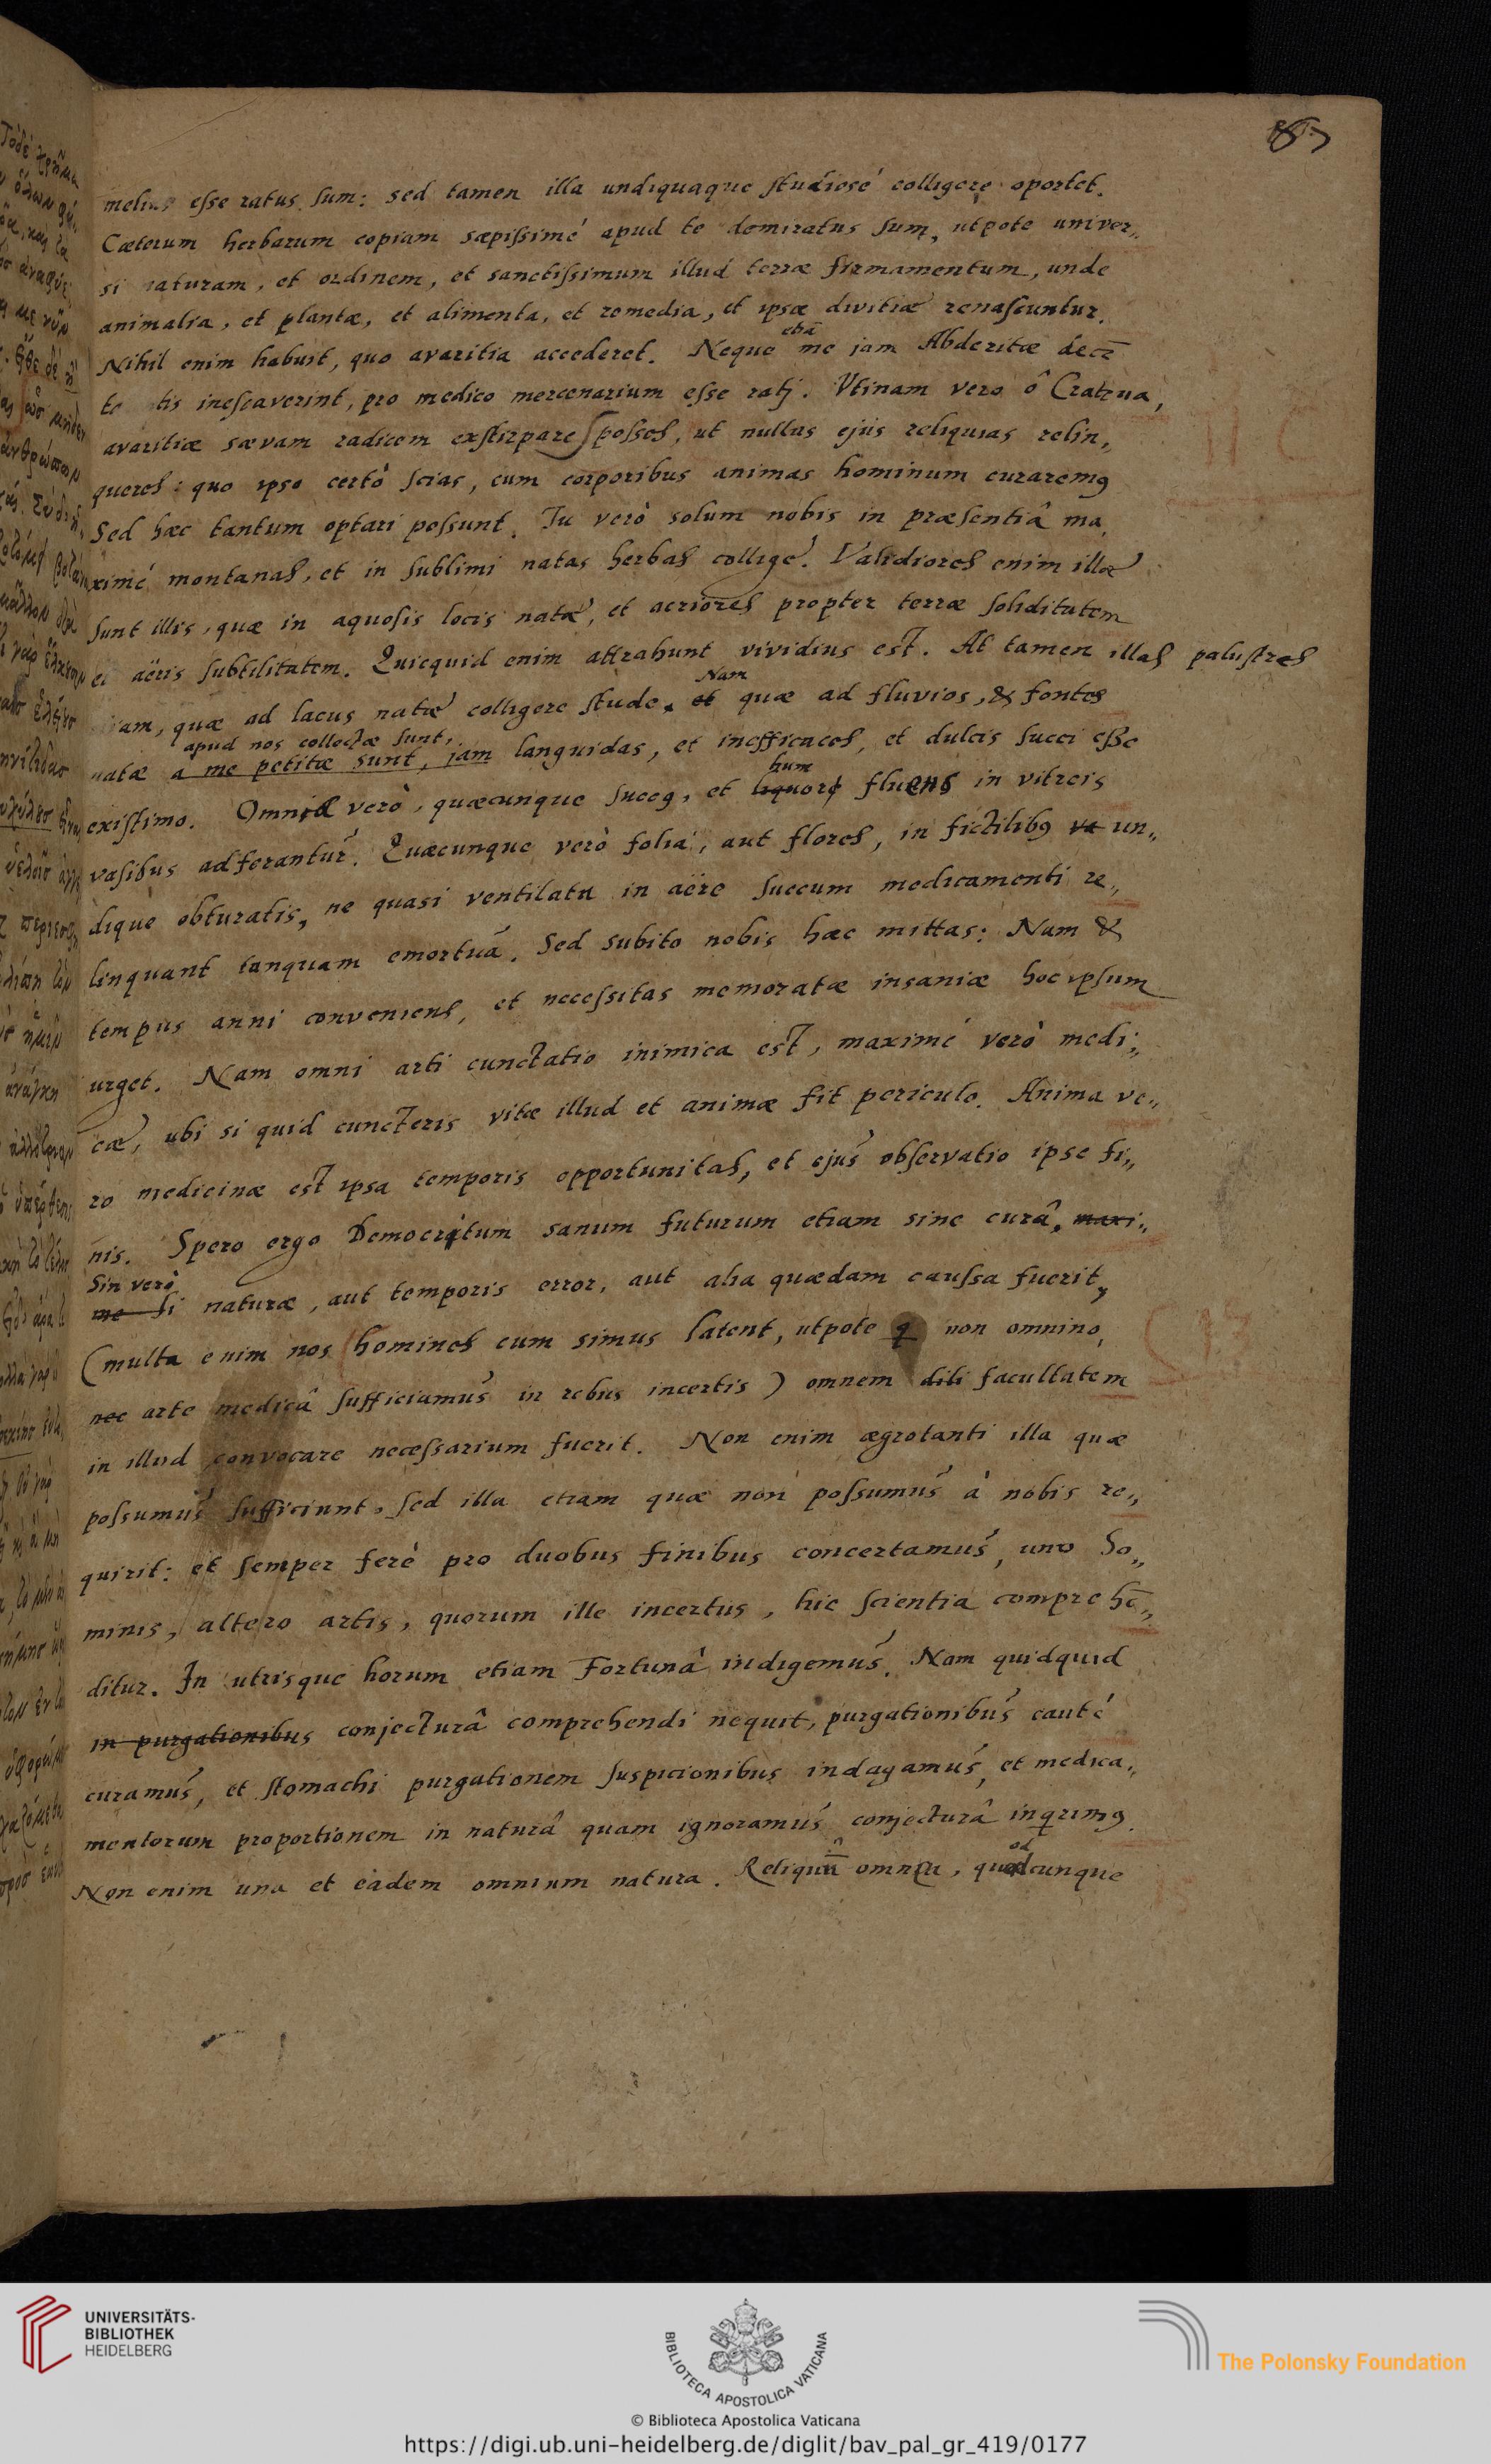 87
melius esse ratus sum: sed tamen illa undiquaque studiosé colligere oportet.
Cæterum herbarum copiam sæpissimé apud te demiratus sum, utpote univer„
si naturam, et ordinem, et sanctissimum illud terræ firmamentum, unde
animalia, et plantæ, et alimenta, et remedia, et ipsæ divitiæ renascuntur.
etiā
Nihil enim habuit, quo avaritia accederet. Neque me jam Abderitæ decē
te tis inescaverint, pro medico mercenarium esse ratj. Vtinam vero ô Crateua,
avaritiæ sævam radicem exstirpare posses, ut nullas ejus reliquias relin„
queres: quo ipso certò scias, cum corporibus animas hominum curaremꝰ
Sed hæc tantum optari possunt. Tu verò solum nobis in præsentiâ ma
ximé montanas, et in sublimi natas herbas collige. Validiores enim illæ
sunt illis, quæ in aquosis locis natæ, et acriores propter terræ soliditatem
et aëris subtilitatem. Quicquid enim attrahunt vividius est. At tamen illas palustres
Nam
iam, quæ ad lacus natæ colligere stude. et quæ ad fluvios, & fontes
apud nos collectæ sunt,
natæ a me petitæ sunt, jam languidas, et inefficaces, et dulcis succi esse
hum
existimo. Omnia verò, quæcunque succꝰ, et liquore fluens in vitreis
vasibus adferantur. Quæcunque verò folia, aut flores, in fictilibꝰ va un„
dique obturatis, ne quasi ventilata in aëre succum medicamenti re„
linquant tanquam emortua. Sed subito nobis hæc mittas: Nam &
tempus anni conveniens, et necessitas memoratæ insaniæ hoc ipsum
urget. Nam omni arti cunctatio inimica est, maximé verò medi„
cæ, ubi si quid cuncteris vitæ illud et animæ fit periculo. Anima ve„
ro medicinæ est ipsa temporis opportunitas, et ejus observatio ipse fi„
nis. Spero ergo Democritum sanum futurum etiam sine curâ, maxi„
Sin verò
me si naturæ, aut temporis error, aut alia quædam caussa fuerit,
(multa enim nos homines cum simus latent, utpote q non omnino,
nec arte medicâ sufficiamus in rebus incertis) omnem dili facultatem
in illud convocare necessarium fuerit. Non enim ægrotanti illa quæ
possumus sufficiunt, sed illa etiam quæ non possumus à nobis re„
quirit: et semper ferè pro duobus finibus concertamus, uno ho„
minis, altero artis, quorum ille incertus, hic scientia comprehē„
ditur. In utrisque horum etiam Fortunâ indigemus. Nam quidquid
in purgationibus conjecturâ comprehendi nequit, purgationibus cauté
curamus, et stomachi purgationem suspicionibus indagamus, et medica„
mentorum proportionem in naturâ quam ignoramus conjecturâ inqrimꝰ.
od
Non enim una et eadem omnium natura. Reliqun omniu, quodcunque
UNIVERSITÄTS-
BIBLIOTHEK
HEIDELBERG
BIBLIOTECA APOSTOLICA VATICANA
The Polonsky Foundation
© Biblioteca Apostolica Vaticana
https://digi.ub.uni-heidelberg.de/diglit/bav_pal_gr_419/0177